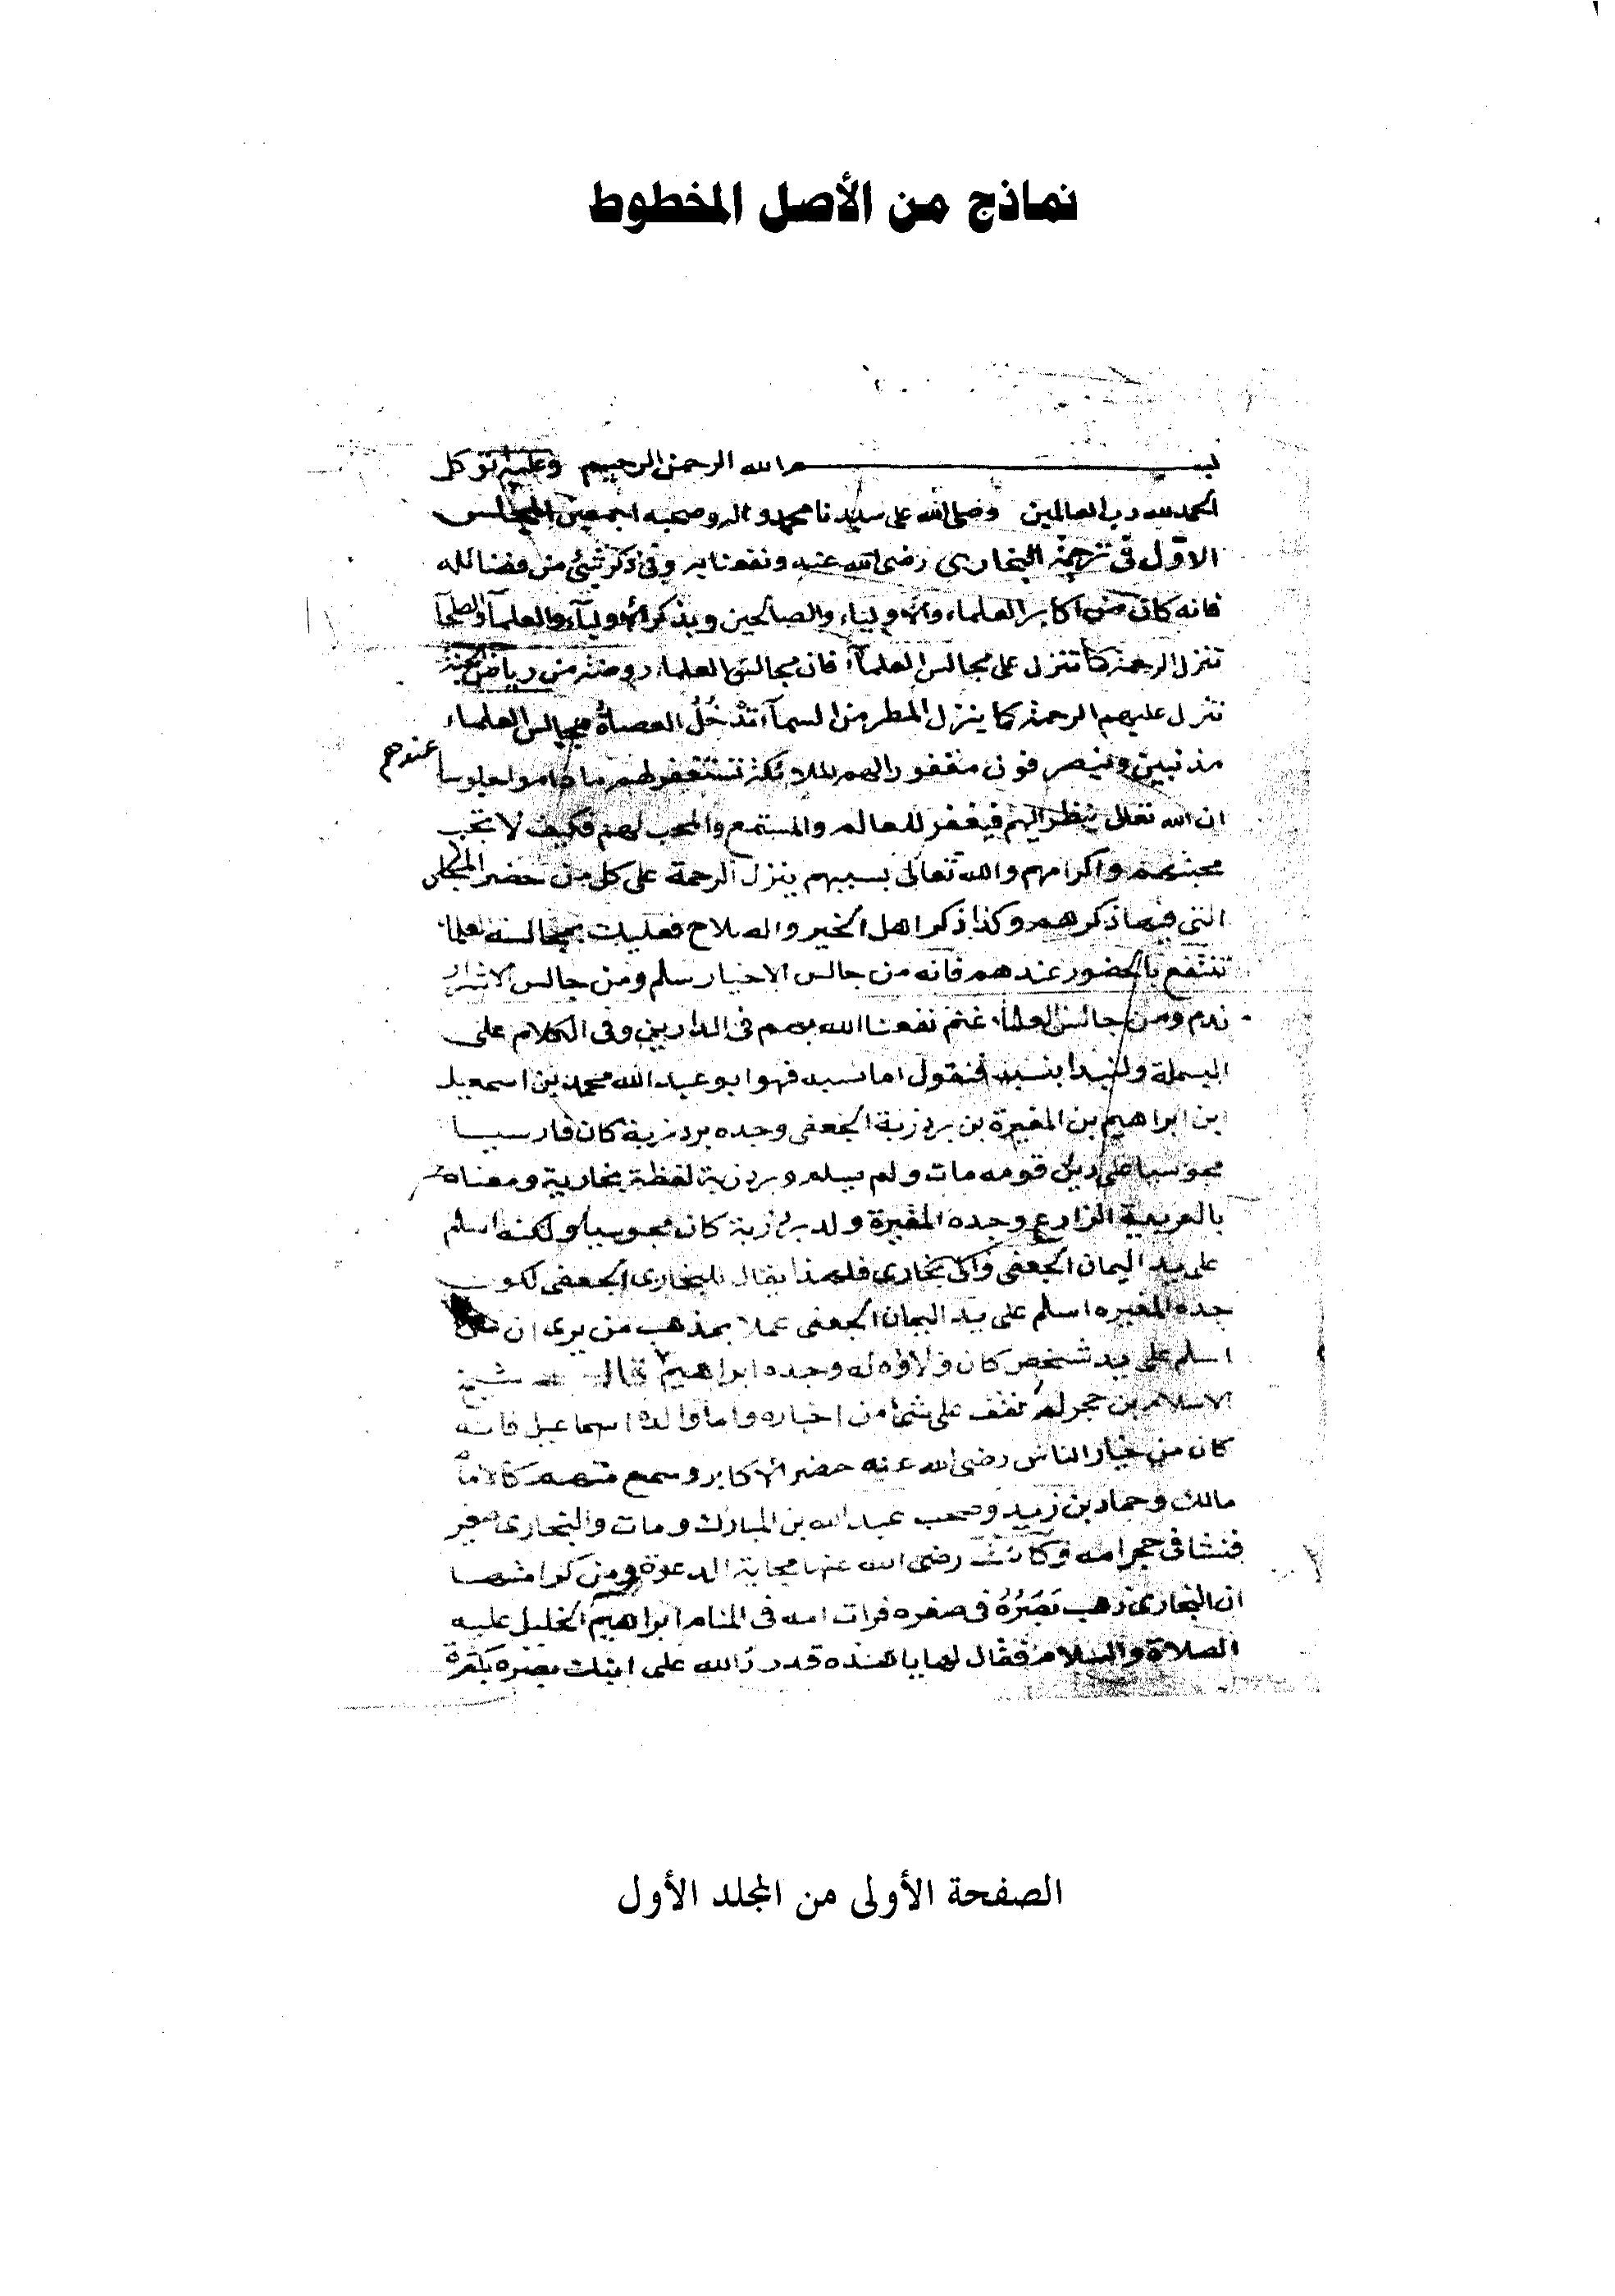 نماذج من الأصل المخطوط
بسم الله الرحمن الرحيم وعليه توكل
الحمد لله رب العالمين وصلى الله على سيدنا محمد واله وصحبه اجمعين المجلس
الاول فى ترجمة البخارى رضى الله عنه ونفعنا به وفى ذكر شئ من فضائله
فانه كان من اكابر العلماء والاولياء والصالحين وبذكر الاولياء والعلمآ والصلحا
تنزل الرحمة كما تنزل على مجالس العلمآء فان مجالس العلماء روضة من رياض الجنة
تنزل عليهم الرحمة كما ينزل المطر من السمآء تَدْخُلُ العصاة مجالس العلماء
مذنبين وينصرفون مغفورا لهم الملائكة تستغفر لهم ما داموا جلوسا عندهم
ان الله تعالى ينظر اليهم فيغفر للعالم والمستمع والمحب لهم فكيف لا تجب
محبتهم واكرامهم والله تعالى بسببهم ينزل الرحمة على كل من حضر المجالس
التى فيها ذكرهم وكذا ذكر اهل الخير والصلاح فعليك بمجالسة العلماء
تنتفع بالحضور عندهم فانه من جالس الاخيار سلم ومن جالس الاشرار
ندم ومن جالس العلماء غنم نفعنا الله بهم فى الدارين وفى الكلام على
البسملة ولنبدا بنسبه فنقول اما نسبه فهو ابو عبد الله محمد بن اسمعيل
ابن ابراهيم بن المغيرة بن بردزبة الجعفى وجده بردزبة كان فارسيا
مجوسيا على دين قومه مات ولم يسلم وبردزبة لفظة بخارية ومعناه
بالعربية الزارع وجده المغيرة ولد بردزبة كان مجوسيا ولكنه اسلم
على يد اليمان الجعفى والى بخارى فلهذا يقال للبخارى الجعفى لكون
جده المغيره اسلم على يد اليمان الجعفى عملا بمذهب من يرى ان من
اسلم على يد شخص كان ولاؤه له وجده ابراهيم قال شيخ
الاسلام بن حجر لم نقف على شئ من اخباره واما والده اسماعيل فانه
كان من خيار الناس رضى الله عنه حضر الاكابر وسمع منهم كالامام
مالك وحماد بن زيد وصحب عبد الله بن المبارك ومات والبخارى صغير
فنشا فى حجر امه وكانت رضى الله عنها مجابة الدعوة ومن كراماتها
ان البخارى ذهب بَصَرُهُ فى صغره فرات امه فى المنام ابراهيم الخليل عليه
الصلاة والسلام فقال لها يا هذه قد رد الله على ابنك بصره بكثرة
الصفحة الأولى من المجلد الأول